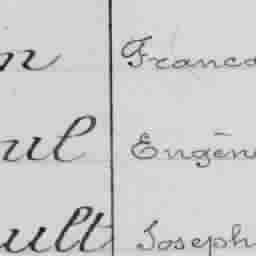 n Franco
ul Eugèn
ult Joseph